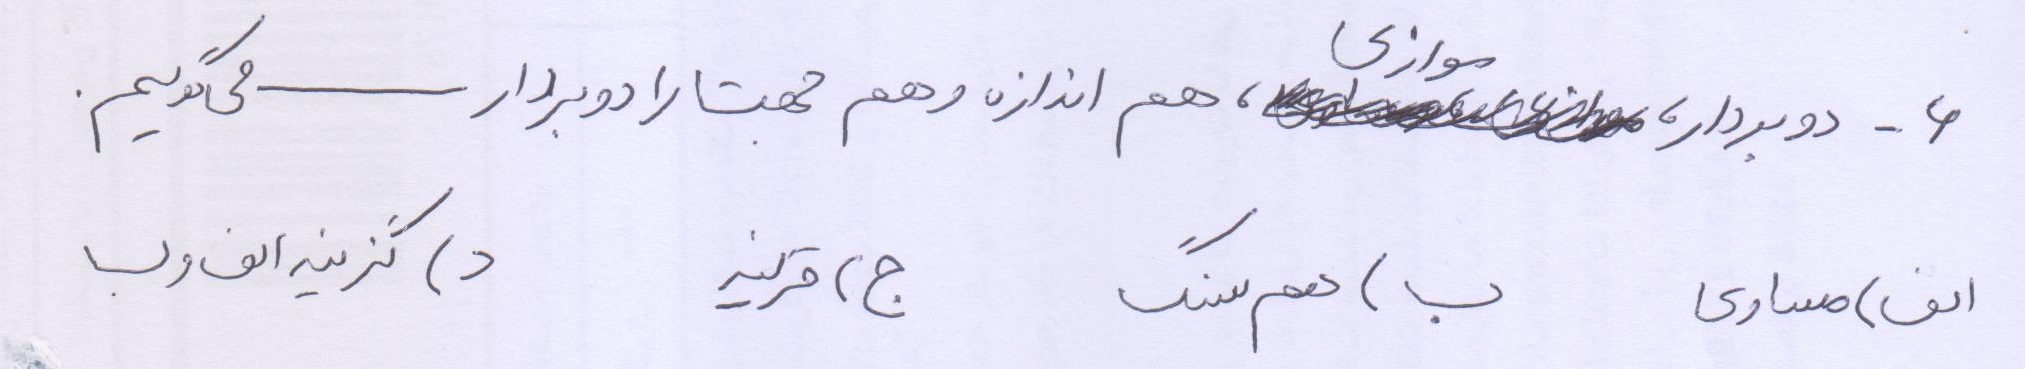 ۶- دو بردار، موازی، هم اندازه و هم جهت را دو بردار ــــــــ می گوییم.
الف) مساوی ب) هم سنگ ج) قرینه د) گزینه الف و ب